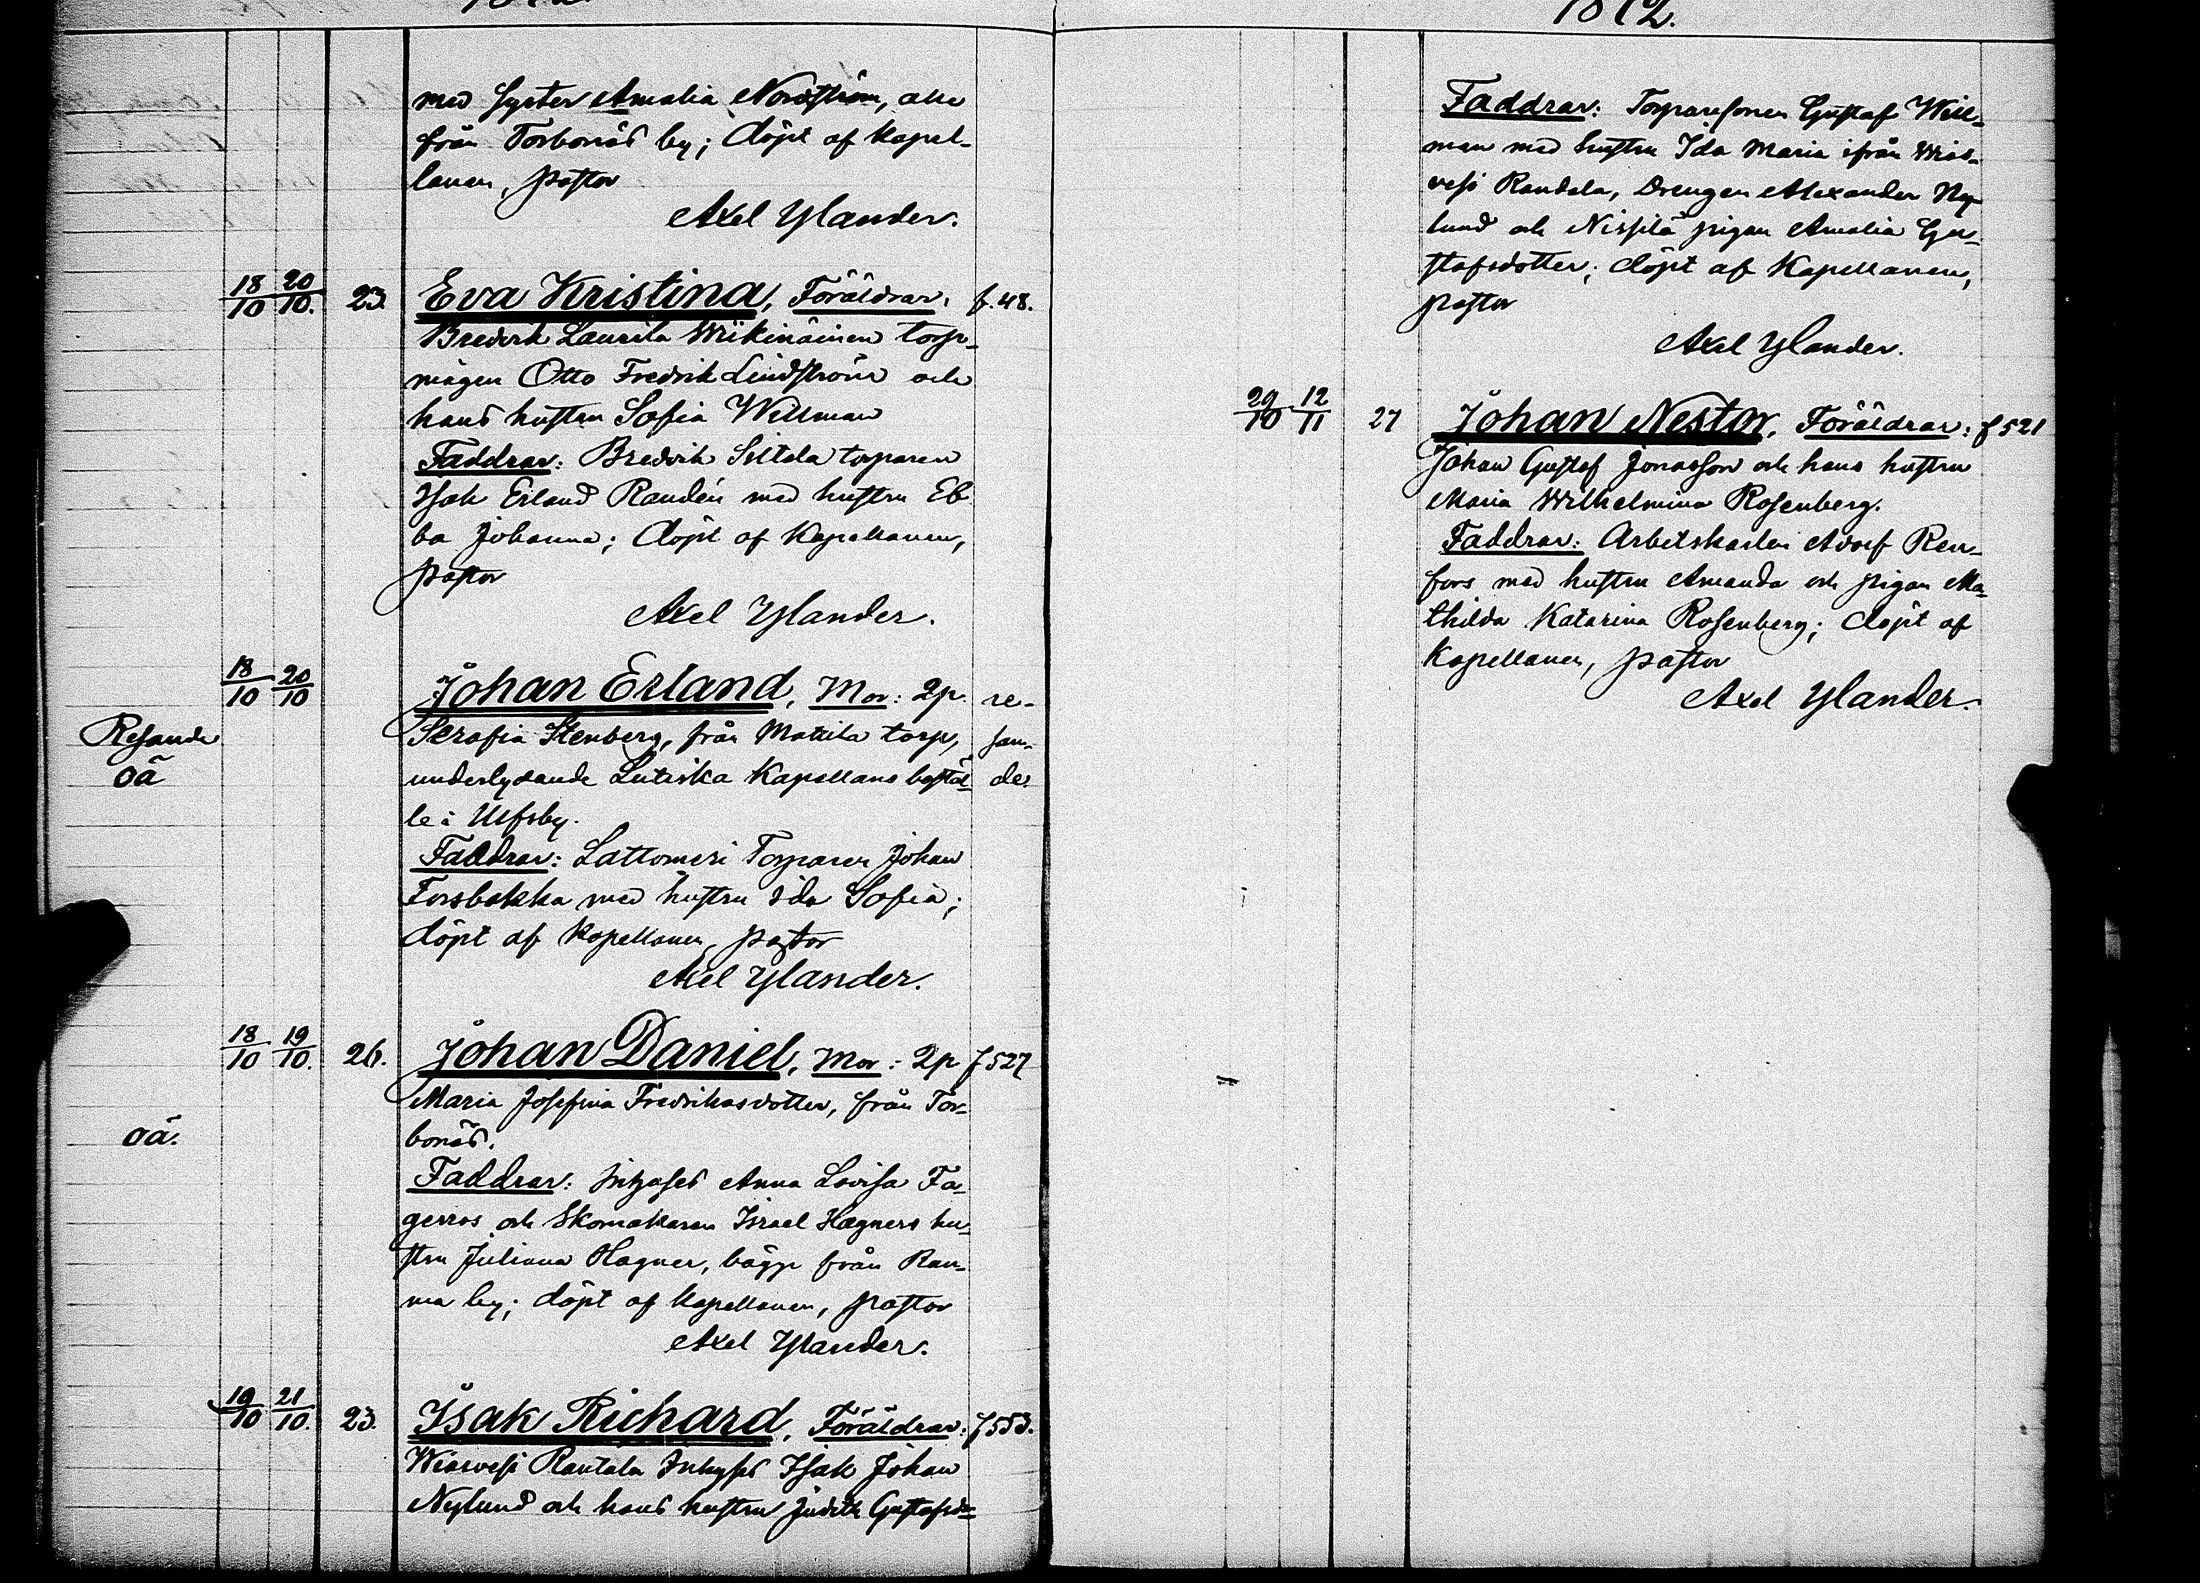 1872.
med Syster Amalia Nordström, alla
från Torbonäs by; döpt af Kapel-
lanen, pastor
Axel Ylander.
18/10 20/10. 23. Eva Kristina, Föräldrar: f. 48.
Bredvik Laurila Wiikinäinen torp-
mågen Otto Fredrik Lindström och
hans hustru Sofia Willman
Faddrar: Bredvik Siltala torparen
Isak Erland Randén med hustru Eb
ba Johanna; döpt af Kapellanen,
pastor
Axel Ylander.
18/10 20/10 Johan Erland, Mor: 2p. re-
Resande Serafia Stenberg, från Mattila torp, san-
oä underlydande Lutiska Kapellans bostäl- de.
le i Ulfsby.
Faddrar: Lattomeri Torparen Johan
Forsbakka med hustru Ida Sofia;
döpt af Kapellanen, pastor
Axel Ylander.
18/10 19/10. 26. Johan Daniel, Mor: 2p f 527
Maria Josefina Fredriksdotter, från Tor-
oä. bonäs.
Faddrar: Inhyses Anna Lovisa Fa-
gerros och Skomakaren Israel Hagners hu-
stru Juliana Hagner, bägge från Rau-
ma by; döpt af Kapellanen, pastor
Axel Ylander.
19/10 21/10. 23. Isak Richard, Föräldrar: f 553.
Wiasvesi Rantala Inhyses Isak Johan
Nylund och hans hustru Judith Gustafsd=
1872.
Faddrar: Torparesonen Gustaf Will-
man med hustru Ida Maria ifrån Wias-
vesi Randala, Drengen Alexander Ny-
lund och Nissilä pigan Amalia Gu-
stafsdotter; döpt af Kapellanen,
pastor
Axel Ylander.
29/10 12/11 27 Johan Nestor, Föräldrar: f 521
Johan Gustaf Jonasson och hans hustru
Maria Wilhelmina Rosenberg.
Faddrar: Arbetskarlen Adolf Ren-
fors med hustru Amanda och pigan Ma-
thilda Katarina Rosenberg; döpt af
Kapellanen, pastor
Axel Ylander.